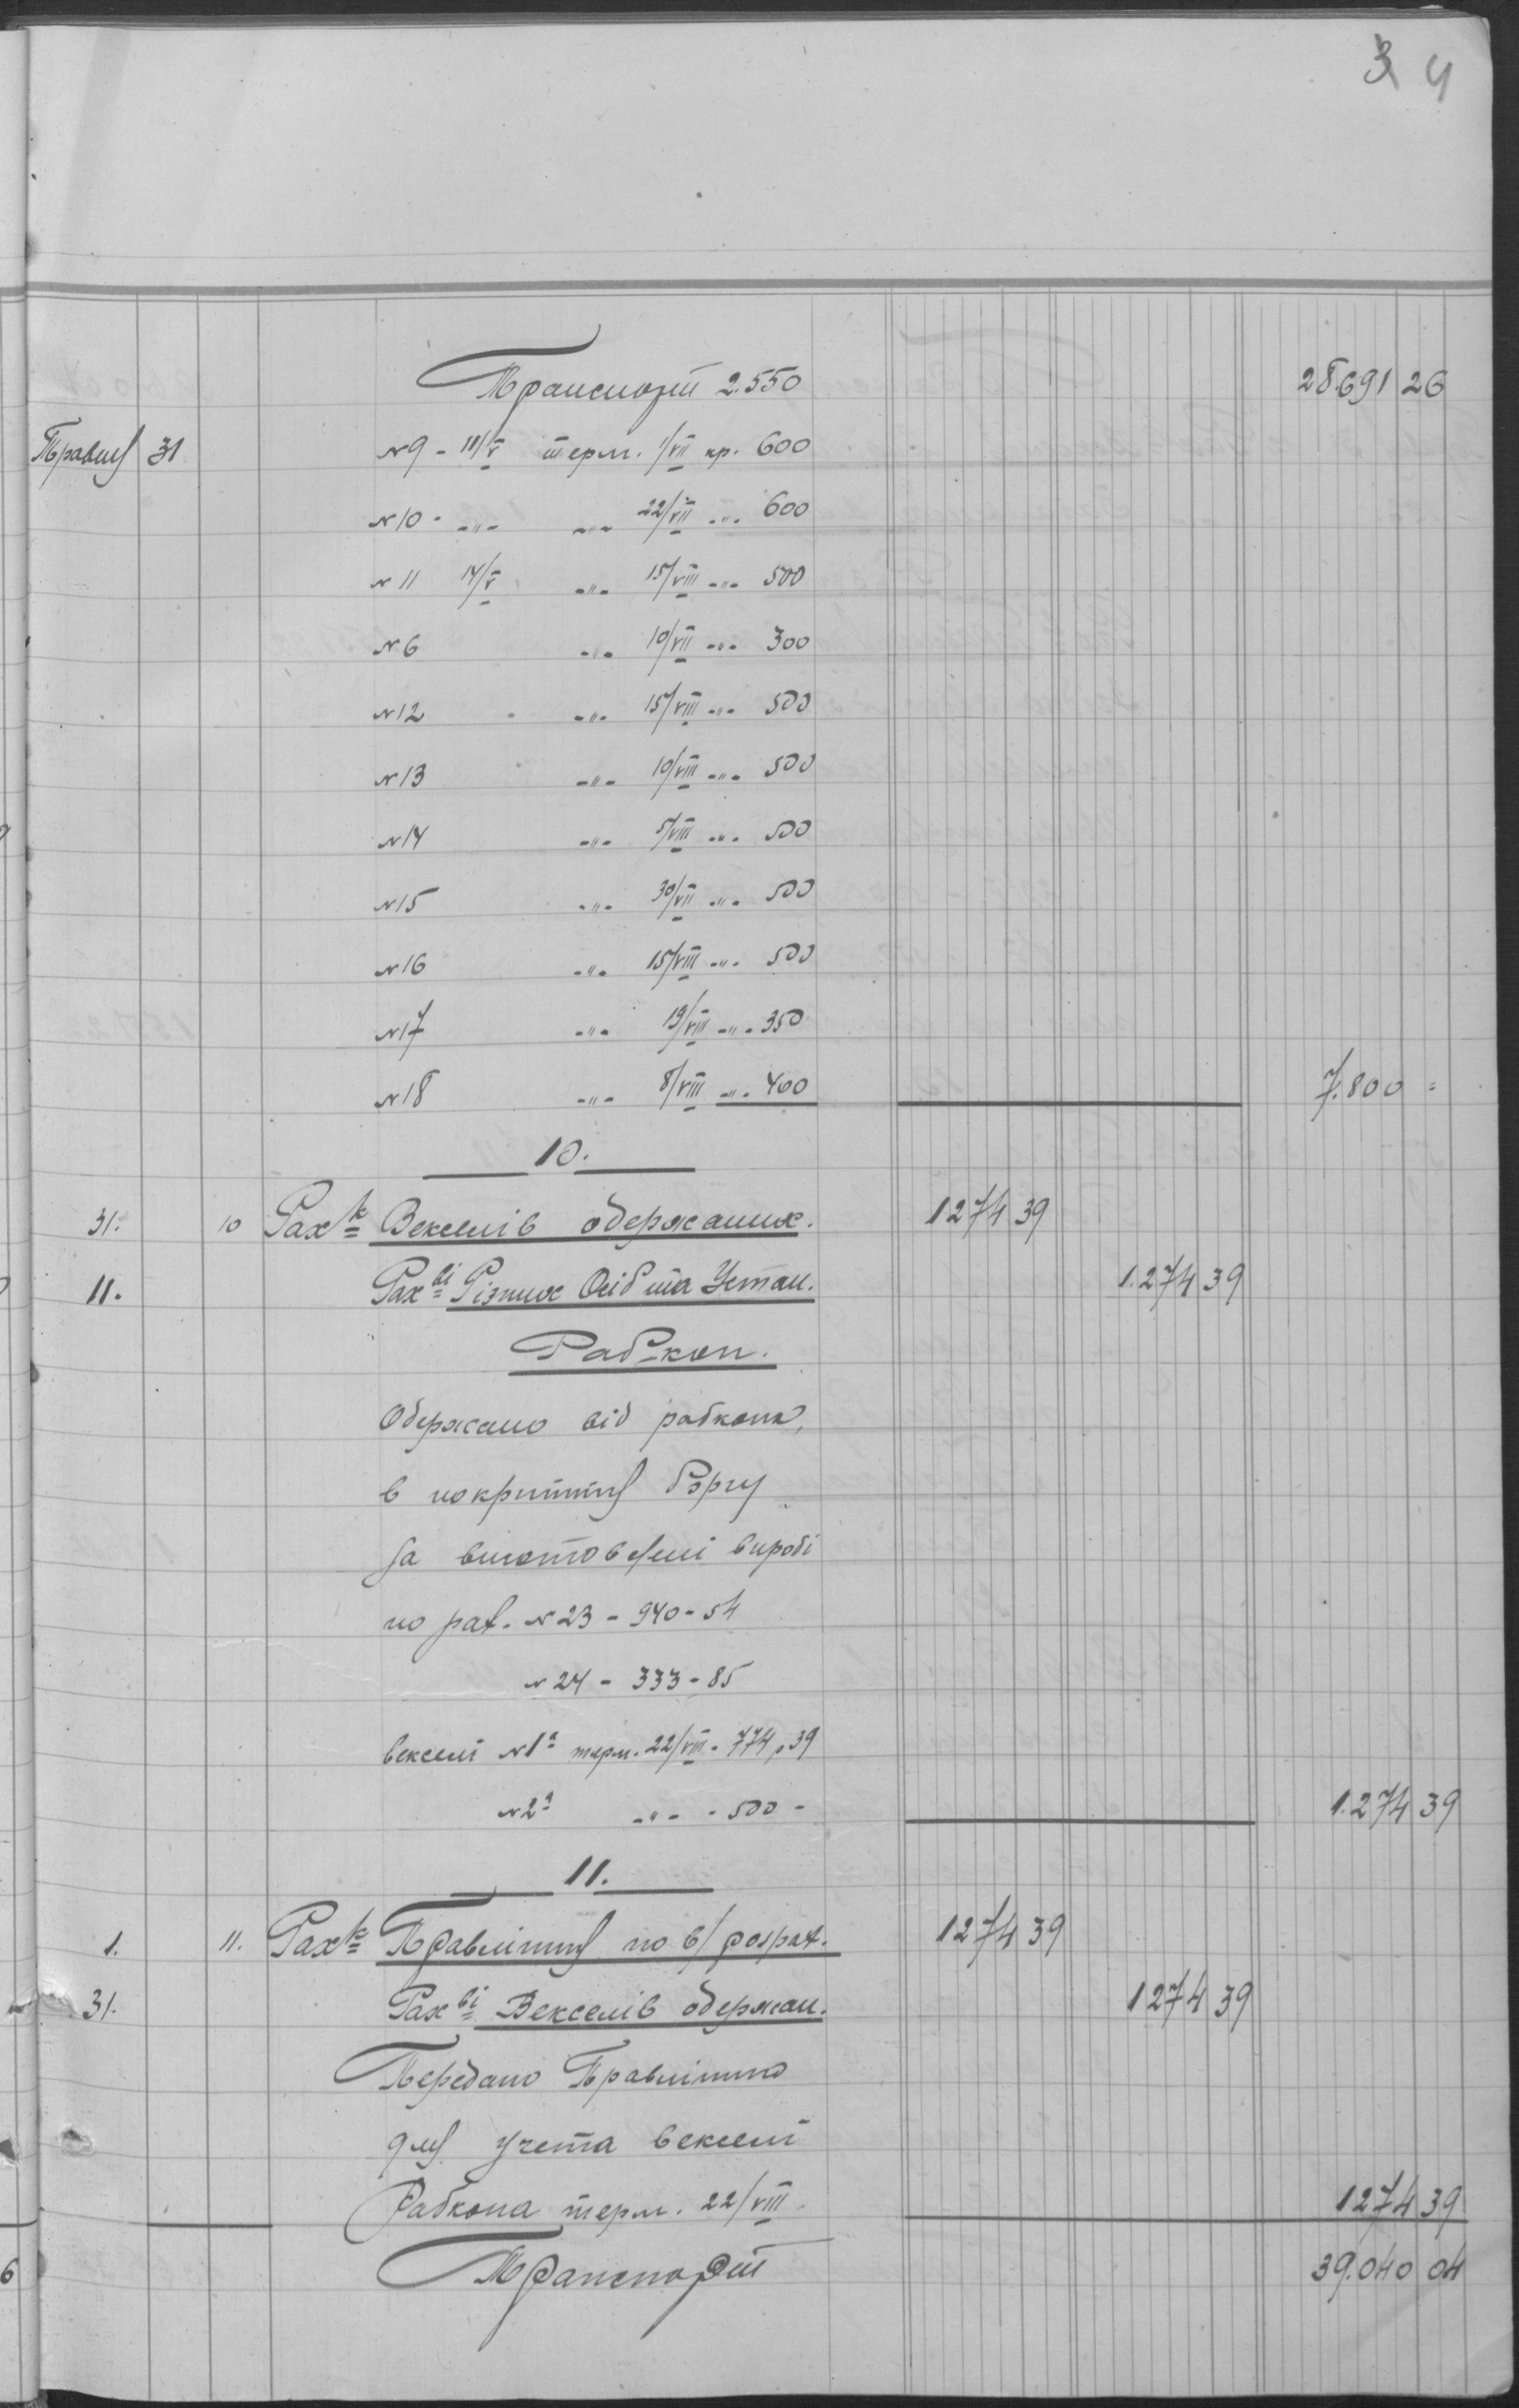 3 4
Транспорт 2.550 28.691 26
Травня 31 №9 - 11/V терм. 1/VII кр. 600
№10 - -"- -"- 22/VII -"- 600
№ 11 14/V -"- 15/VIII -"- 500
№6 -"- 10/VII -"- 300
№12 -"- 15/VIII -"- 500
№13 -"- 10/VIII -"- 500
№14 -"- 5/VIII -"- 500
№15 -"- 30/VII -"- 500
№16 -"- 15/VIII -"- 500
№17 -"- 19/VIII -"- 350
№18 -"- 8/VIII -"- 400 7.800 =
10.
31. 10 Рах-к Векселів одержаних. 1274 39
11. Рах-ві Різних Осіб та Устан. 1.274 39
Раб-коп.
Одержано від рабкопа,
в покриття боргу
за виготовлені вироби
по рах. №23 - 940 - 54
№24 - 333 - 85
векселі №1а терм. 22/VIII - 774,39
№2а -"- - 500 - 1.274 39
11.
1. 11. Рах-к Правління по в/розрах. 1274 39
31. Рах-ві Векселів одержан. 1274 39
Передано Правлінню
для учета векселі
Рабкопа терм. 22/VIII. 1274 39
Транспорт 39.040 04
6